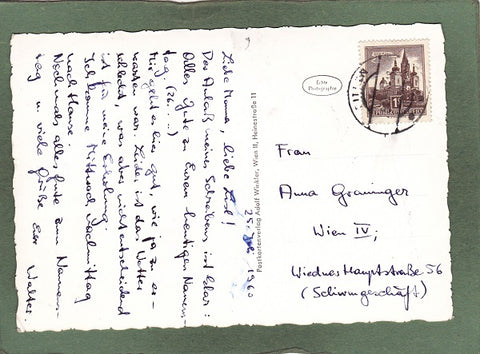 25. 1960
Liebe Mama, liebe Susi!
Der Anlaß meines Schreibens ist klar:
Alles Gute zu Euren heutigen Namens-
tag. (26. ...)
Mir geht es hier gut, wie ja zu er-
warten war. Leider ist das Wetter
schlecht, was aber nicht entscheidend
ist für meine Erholung.
Ich komme Mittwoch Nachmittag
nach Hause.
Nochmals alles Gute zum Namens-
tag u. viele Grüße Euer Walter.
Postkartenverlag Adolf Winkler, Wien II, Heinestraße 11
Echte
Photographie
Frau
Anna Graninger
Wien IV;
Wiedner Hauptstraße 56
(Schirmgeschäft)